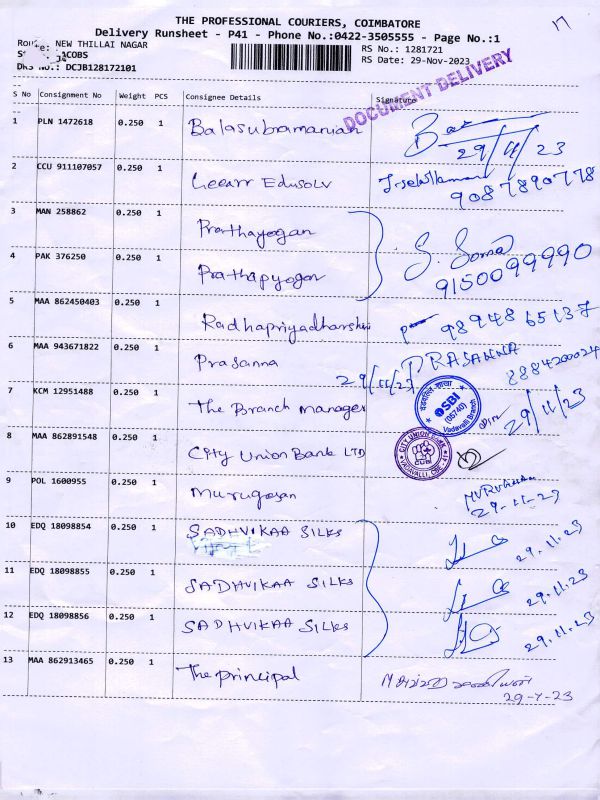 17
THE PROFESSIONAL COURIERS, COIMBATORE
Delivery Runsheet - P41 - Phone No.:0422-3505555 - Page No.:1
Route: NEW THILLAI NAGAR
RS No.: 1281721
JACOBS
RS Date: 29-Nov-2023
DRS No.: DCJB128172101
DOCUMENT DELIVERY
S No Consignment No Weight PCS Consignee Details Signature
1 PLN 1472618 0.250 1 Balasubramanian
29/11/23
2 CCU 911107057 0.250 1 Geearr Edusolv
9087890778
3 MAN 258862 0.250 1 Prathayogan
4 PAK 376250 0.250 1 Prathapyogan
9150099990
5 MAA 862450403 0.250 1 Radhapriyadharshini 9894865137
6 MAA 943671822 0.250 1 Prasanna PRASANNA
29/11/23 8884200024
7 KCM 12951488 0.250 1 The Branch manager 29/11/23
SBI (05740) Vadavalli Branch
8 MAA 862891548 0.250 1 City Union Bank LTD
CITY UNION BANK CUB VADAVALLI, CBE-41
9 POL 1600955 0.250 1 Murugasan
29-11-23
10 EDQ 18098854 0.250 1 SADHVIKAA SILKS 29.11.23
11 EDQ 18098855 0.250 1 SADHVIKAA SILKS 29.11.23
12 EDQ 18098856 0.250 1 SADHVIKAA SILKS 29.11.23
13 MAA 862913465 0.250 1 The principal